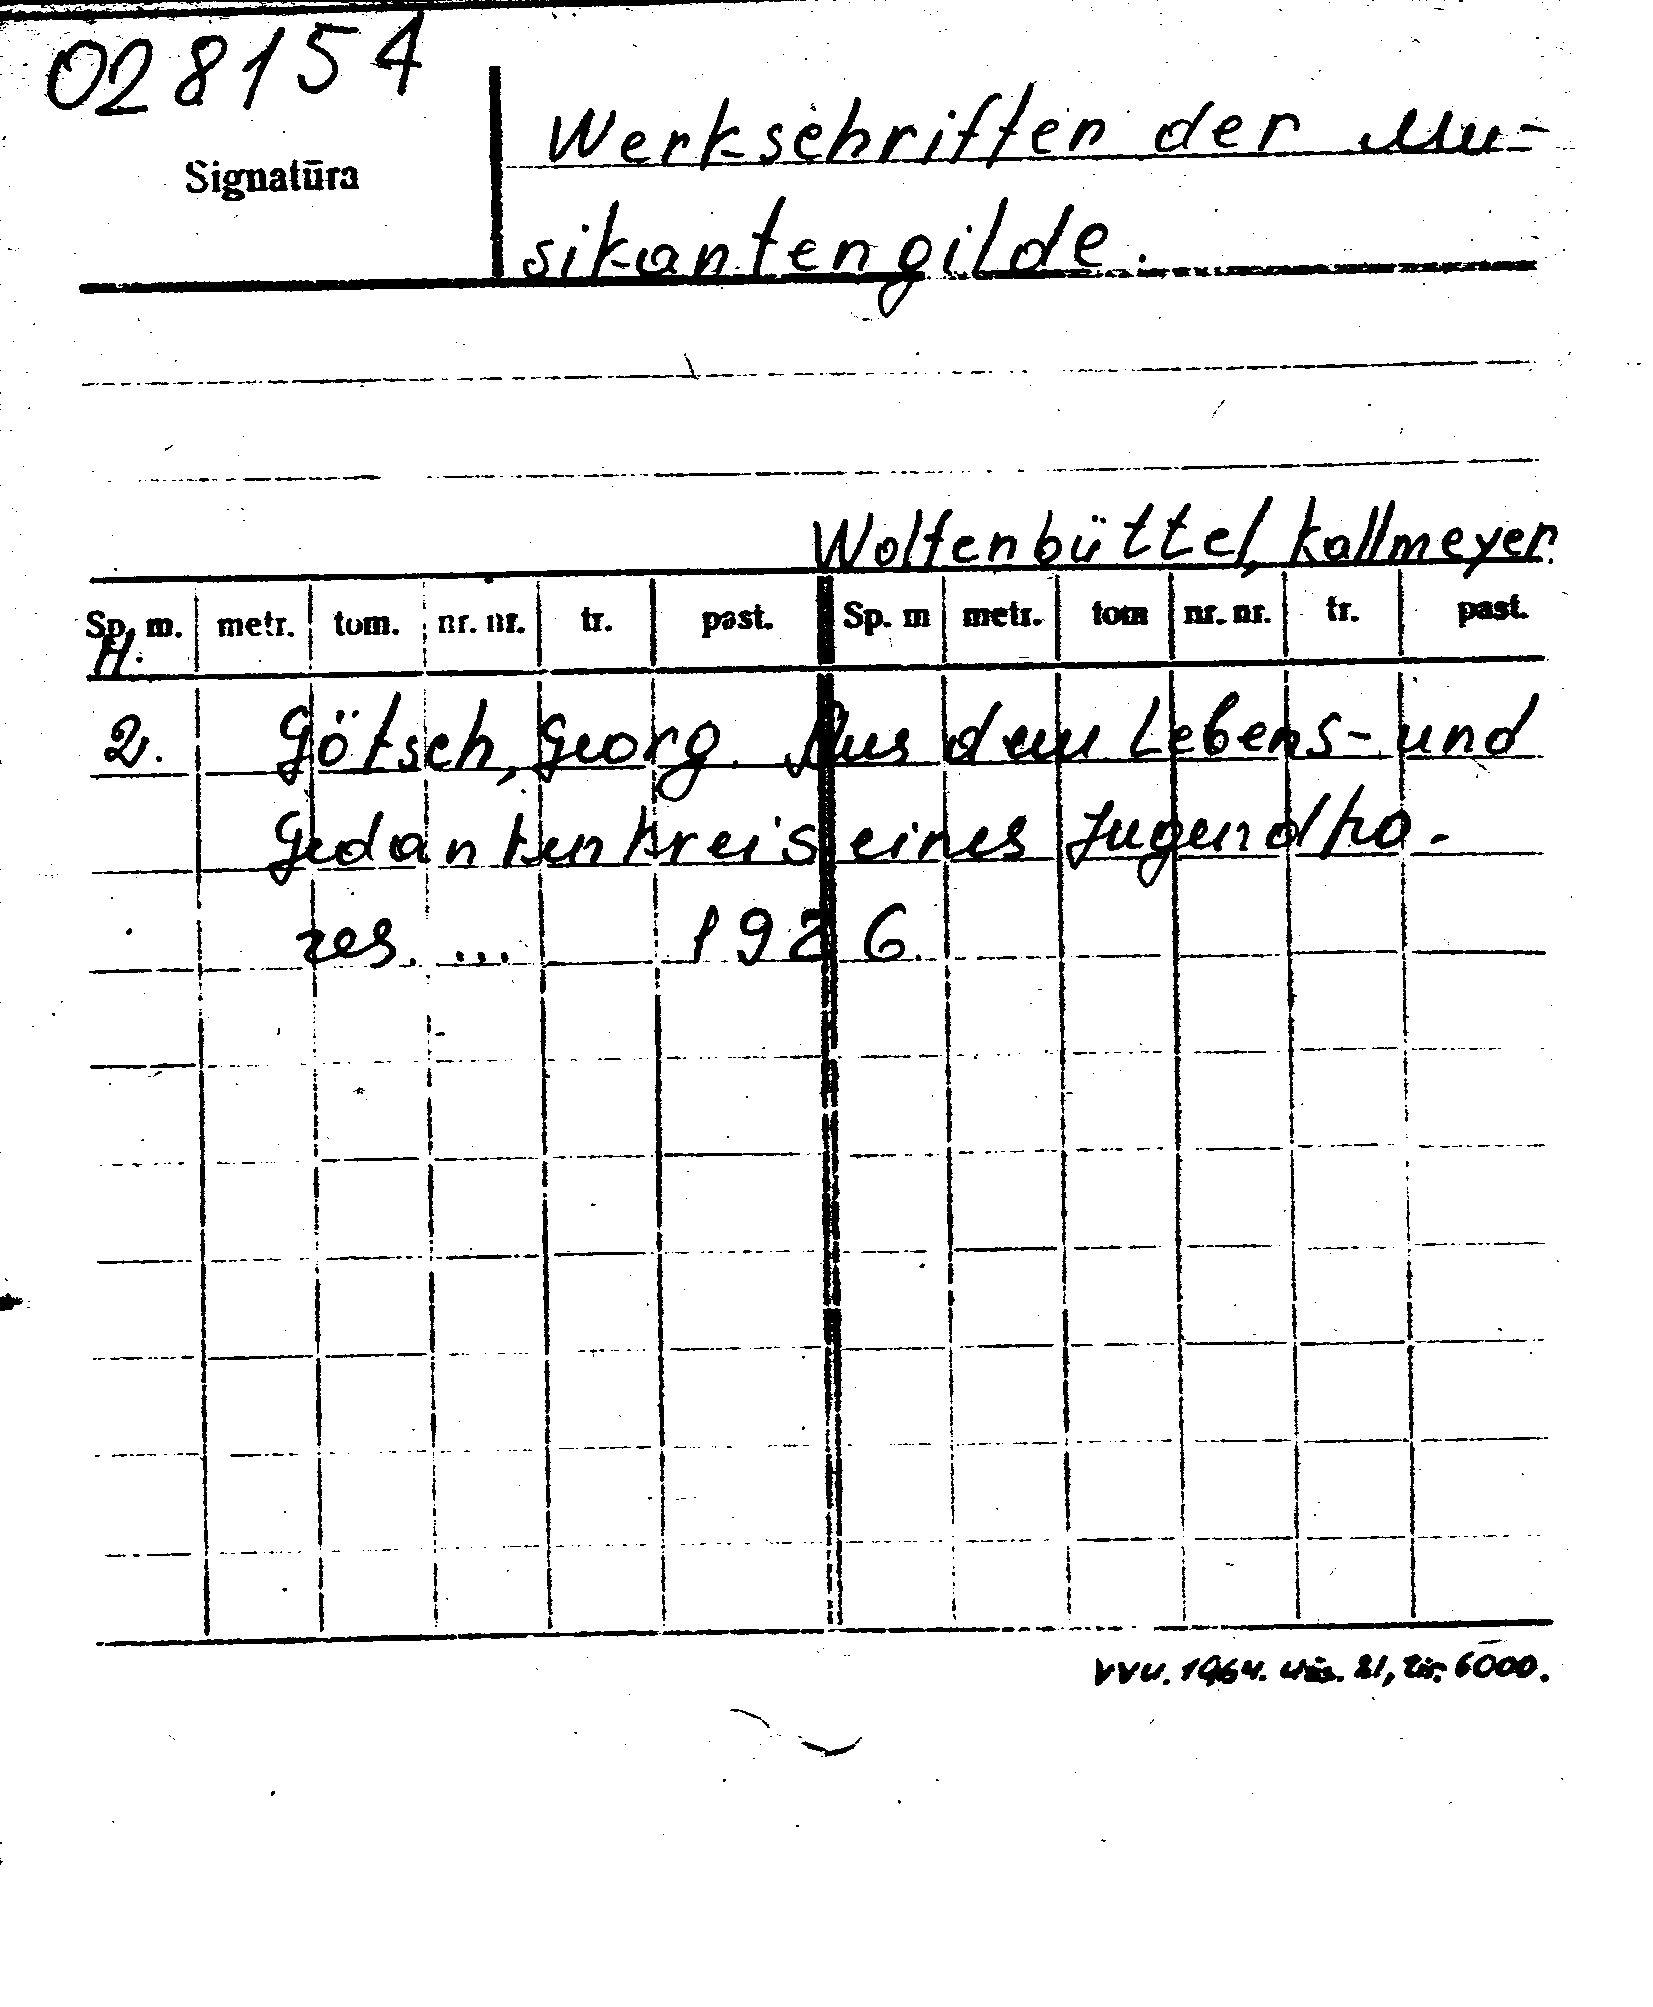 028154
Signatūra
Werkschriften der Mu-
sikantengilde.
Wolfenbüttel, Kallmeyer.
Sp. m. metr. tom. nr. nr. tr. past. Sp. m metr. tom nr. nr. tr. past.
H.
2. Götsch, Georg. Aus dem Lebens- und
Gedankenkreis eines Jugendcho-
res. ... 1926.
VVU. 1964. 21, tir. 6000.